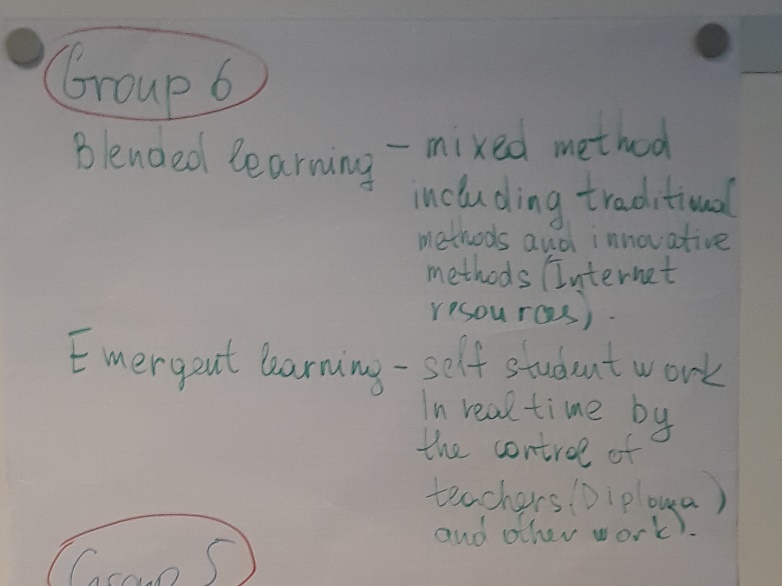 Group 6
Blended learning - mixed method
including traditional
methods and innovative
methods (Internet
resources).
Emergent learning - self student work
In real time by
the control of
teachers (Diploma)
and other work).
Group 5